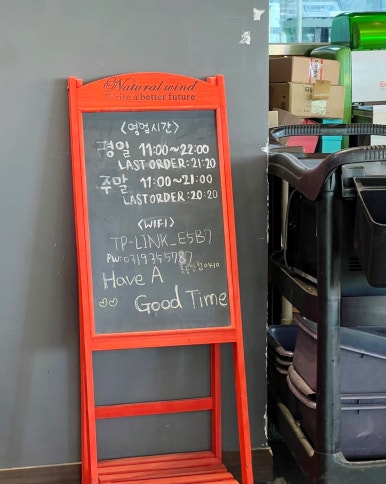 Natural wind
Write a better future
<영업시간>
평일 11:00~22:00
LAST ORDER: 21:20
주말 11:00~21:00
LAST ORDER: 20:20
<WIFI>
TP-LINK_E5B7
PW: 0319355787
Have A
Good Time